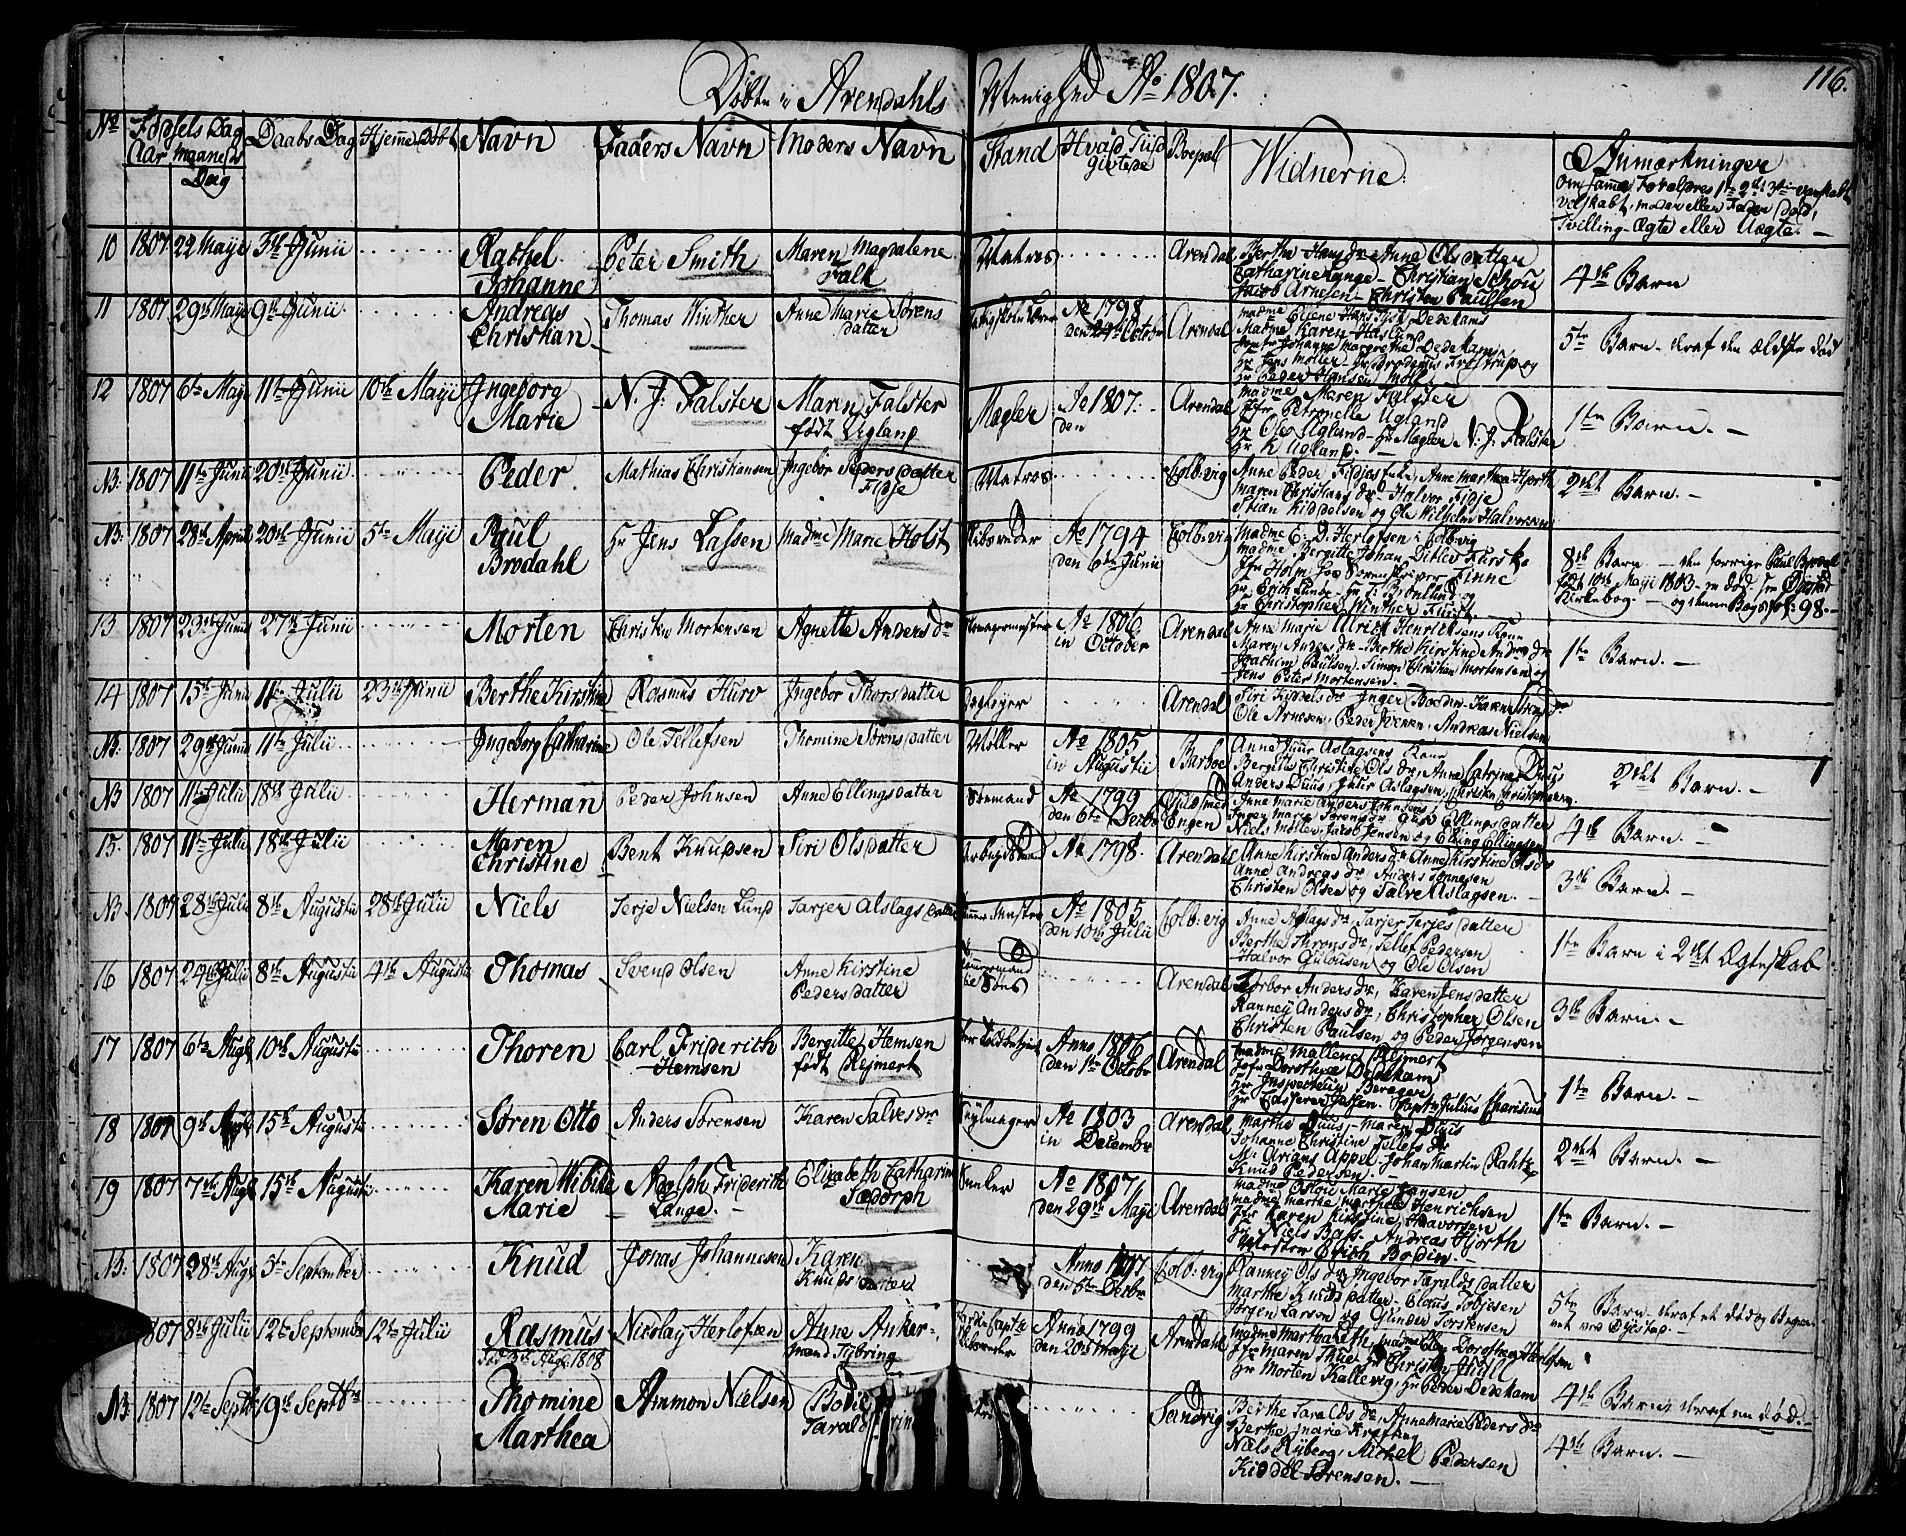 Døbte i Arendahls Menighed Ao 1807.
116.
No Fødsels Dag Aar maanets Dag Daabs Dag Hjemme Døbt Navn Faders Navn Moders Navn Stand Hvad Tiid givtede Boepæl Widnerne. Anmærkninger
om samme Forelpres 1te 2det 3die vanskabt
velskabt, moder eller Fader død,
Tvilling-Ægte eller Uægte. —
10 1807 22 Maji 3die Junii Rachel Johanne Peter Smith Maren Magdalene Falk Matros Arendal
Berthe Hans dr Anne Olsdatter
Catharine Lange – Christian Schou
Jacob Arnesen – Christen Paulsen
4de Barn
11 1807 29de Maji 9de Junii Andreas Christian Thomas Winther Anne Marie Sørens datter Ao 1798 den 24de October Arendal
Madme Karen Hasl
Jomfr Johanne Margrethe Dedekam
Hr Jens Møller
Hr Peder Hansen Molk
5te Barn – deraf den ældste død
12 1807 6te Maji 11te Junii 10de Maji Ingeborg Marie N. J. Falster Maren Falster født Ugland Mægler Ao 1807. den Arendal
Madme Maren Falster
Jfr Petronelle Ugland
Hr Ole Ugland – Hr Mægler N. J. Falster
Hr K Ugland.
1te Barn. —
NB. 1807 11te Junii 20de Junii Peder Mathias Christiansen Ingebor Peders datter Fidje Matros Colb:vig
Maren Christians dr – Halvor Fidje
Stian Kiddelsen og Ole Wilhelm Halvorsen
2det Barn. —
NB. 1807 28de April 20de Junii 5te Maji Paul Brodahl Hr Jens Lassen Madme Marie Holst Skibsreder Ao 1794 den 6te Junii Colb:vig
Madme E. D. Herlofsen i Colb:vig
Madme Bergitte Johan Ditlev Fürst
Hr Christopher Winther Fürst.
8de Barn — den forrige Paul Brodal
født 10de Maji 1803. er død
Kirkebog — og denne Bogs fol: 98. —
13 1807 23de Junii 27de Junii Morten Christen Mortensen Agnette Anders dr Ao 1806 in October Arendal
Anne Marie Ulrick Henricksens Kone
Maren Anders dr – Berthe Kirstine Andre dr
Joachim Paulsen, Simon Christian Mortensen og
Jens Peter Mortensen.
1te Barn. —
14 1807 15de Junii 11te Julii 23de Junii Berthe Kirstine Rasmus Hurv Ingebor Thorsdatter Dagleyer Arendal
Siri Kiddels dr – Inger Boeden – Karen
Ole Arnesen, Peder Svensen, Andreas Nielsen
NB. 1807 29de Junii 11te Julii Ingeborg Catharine Ole Tellefsen Thomine Sørens datter Møller Ao 1805 in Augustii Barboe
Anne Juur Aslagsens Kone
Bergitte Christine Ols dr, Anne Catrine Duus
Anders Duus, Juur Aslagsen, Christen Christophersen.
2det Barn. —
NB 1807 11te Julii 18de Julii Herman Peder Johnsen Anne Ellings datter Ao 1799 den 6te Decbr Guldsmed Engen
Anne Marie Anders Johnsens
Inger Marie Sørens dr, Giert Ellingsdatter
Niels Møller, Jacob Jensen og Elling Ellingsen
4de Barn.
15. 1807 11te Julii 18de Julii Maren Christine Bent Knudsen Siri Olsdatter Arbeydsmand Ao 1798. Arendal
Anne Kirstine Anders dr Anne Kirstine Ols dr
Anne Andreas dr, Anders Tønnesen
Christen Olsen og Salve Aslagsen.
3de Barn. —
NB. 1807 28de Julii 8de Augustii 28de Julii Niels Terje Nielsen Lund Tarjer Aslags datter Ao 1805 den 10de Julii Colb:vig
Anne Aslags dr, Tarjer Terjes datter
Berthe Throns dr, Tellef Pedersen
Halvor Gulousen og Ole Olsen
1te Barn i 2det Ægteskab
16 1807 24de Julii 8de Augustii 4de Augustii Thomas Svend Olsen Anne Kirstine Peders datter Arendal
Torbor Anders dr, Karen Jens datter
Ranney Anders dr, Christopher Olsen
Christen Paulsen og Peder Jørgensen
3de Barn. —
17 1807 6te Augst 10de Augustii Thoren Carl Friderich Hemsen Bergitte Hemsen født Rejmert Anno 1806 den 1te Octobr Arendal
Madme Mallene Rejmert
Jfr Dorothea Dedekam
Hr Inspecteur Berager
Hr Casserer Jessen. Captn Julius Charisius
1te Barn. —
18 1807 9de Augst 15de Augustii Søren Otto Anders Sørensen Karen Salves dr Seylmager Ao 1803 in Decembr Arendal
Marthe Duus – Maren Duus
Johanne Christine Tellefs dr
Mr Arians Appel – Johan Martin Rahtz
Knud Pedersen
2det Barn. —
19 1807 7de Augst 15de Augustii Karen Wibike Marie Adolph Friderich Lange. Elizabeth Catharine Tædorph Sneker Ao 1807 den 29de Maji Arendal
Madme Marthe Margrethe Henrichsen
Jfr Karen Kirstine Haavorsen
Hr Niels Bass. Andreas Hjorth
Moster Erich Bodin
1te Barn. —
NB. 1807 28de Augst 5te September Knud Jonas Johannesen Karen Knuds datter Anno 1797 den 5te Decbr Colb:vig
Ranney Ols dr Ingebor Taralds datter
Marthe Knuds datter. Claus Tobjesen
Jørgen Larsen og Gunder Torstensen
5te Barn deraf et død og Begravet ved Øyestad
1807 8de Julii 12te September 12te Julii Rasmus Nicolay Herlofsen Anne Ankermand Tybring Skibsreder Anno 1799 den 20de Maji Arendal
død Augst 1808
Jfr Maren Thue Hr Christen Juell
Hr Morten Kallevig, Hr Peder Dedekam
4de Barn, deraf en død. —
NB. 1807 12te Septbr 19de Septbr Thomine Marthea Ammon Nielsen Bodil Tarald Sandvig
Berthe Taralds dr, Anne Marie Peders dr
Berthe Marie
Niels Ryberg, Michel Pedersen
Kiddel Sørensen. —
4de Barn. —